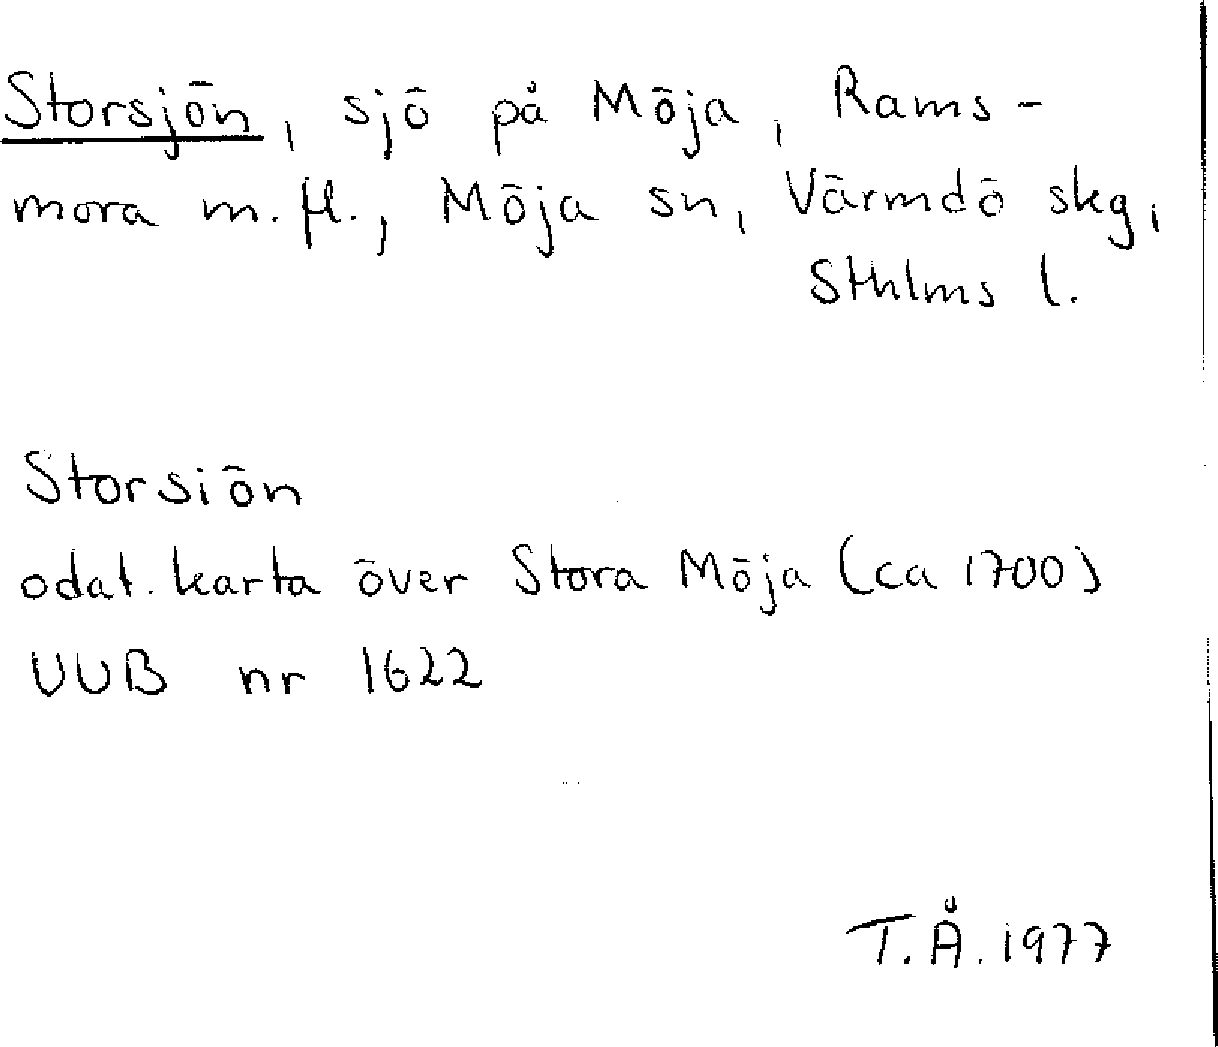 Storsjön, sjö på Möja, Rams-
mora m.fl., Möja sn, Värmdö skg,
Sthlms l.
Storsiön
odat. karta över Stora Möja (ca 1700)
UUB nr 1622
T.Å. 1977